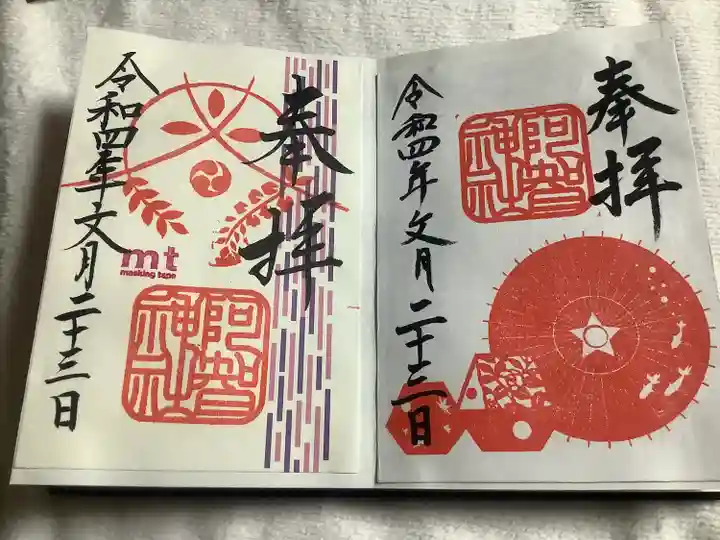 奉拝
阿智神社
mt
masking tape
令和四年文月二十三日
奉拝
阿智神社
令和四年文月二十三日